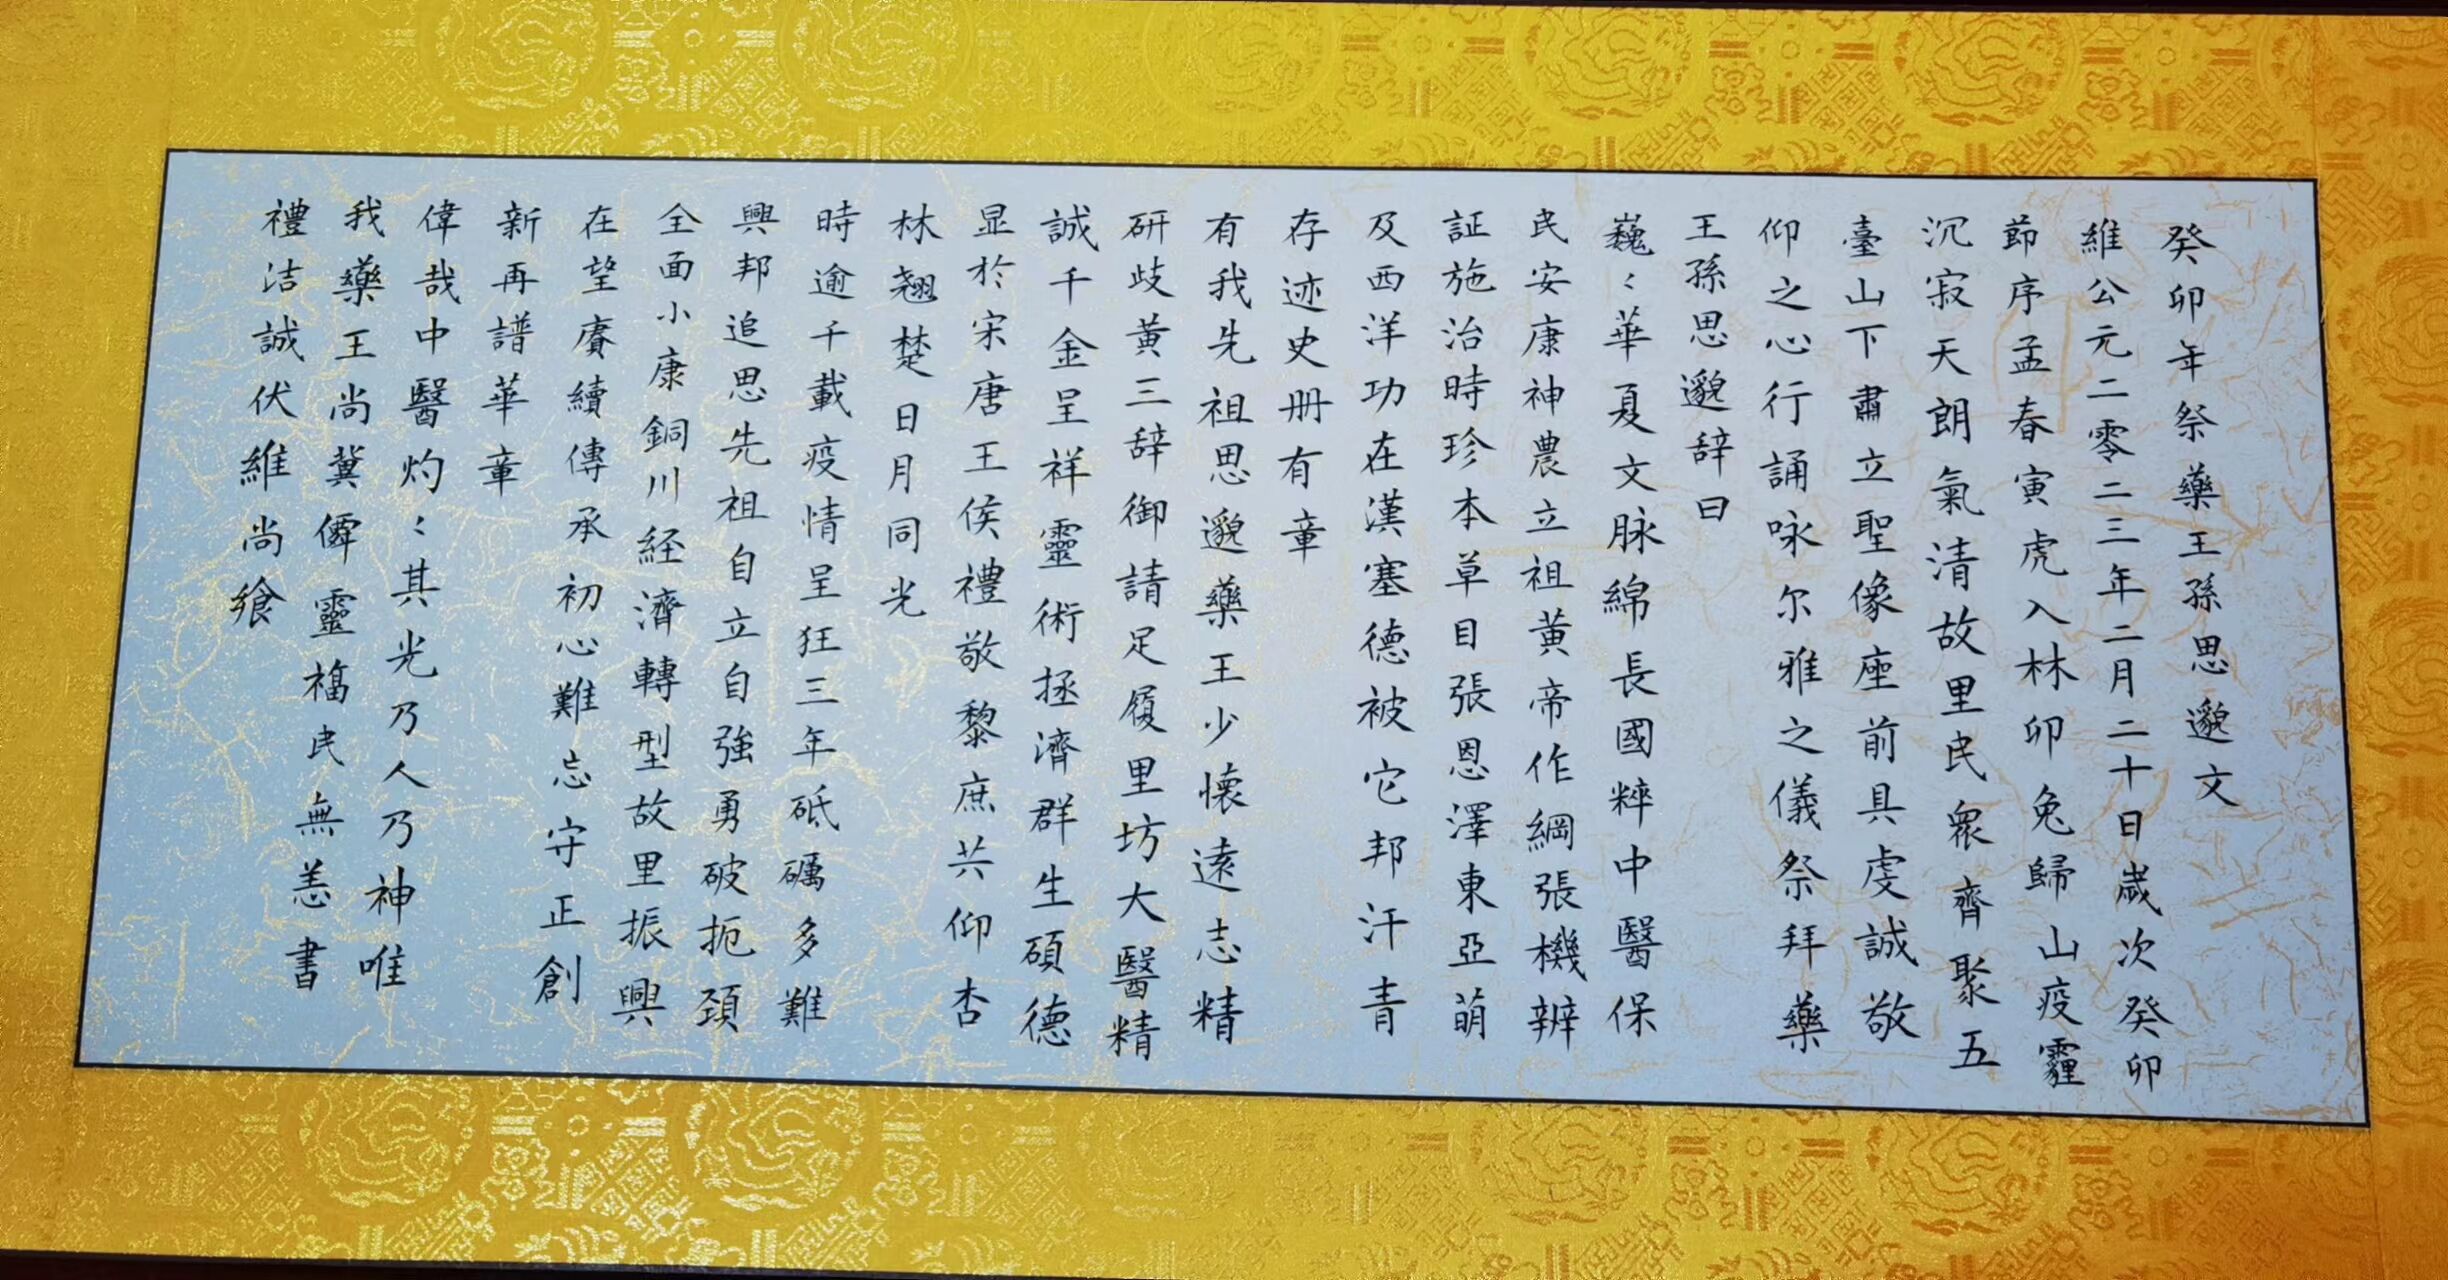 癸卯年祭藥王孫思邈文
維公元二零二三年二月二十日歲次癸卯
節序孟春寅虎入林卯兔歸山疫霾
沉寂天朗氣清故里民眾齊聚五
臺山下肅立聖像座前具虔誠敬
仰之心行誦咏尔雅之儀祭拜藥
王孫思邈辞曰
巍〻華夏文脉綿長國粹中醫保
民安康神農立祖黃帝作綱張機辨
証施治時珍本草目張恩澤東亞萌
及西洋功在漢塞德被它邦汗青
存迹史册有章
有我先祖思邈藥王少懷遠志精
研歧黃三辞御請足履里坊大醫精
誠千金呈祥靈術拯濟群生碩德
显於宋唐王侯禮敬黎庶共仰杏
林翘楚日月同光
時逾千載疫情呈狂三年砥礪多難
興邦追思先祖自立自強勇破扼頸
全面小康銅川経濟轉型故里振興
在望賡續傳承初心難忘守正創
新再譜華章
偉哉中醫灼〻其光乃人乃神唯
我藥王尚冀僊靈福民無恙書
禮洁誠伏維尚飨